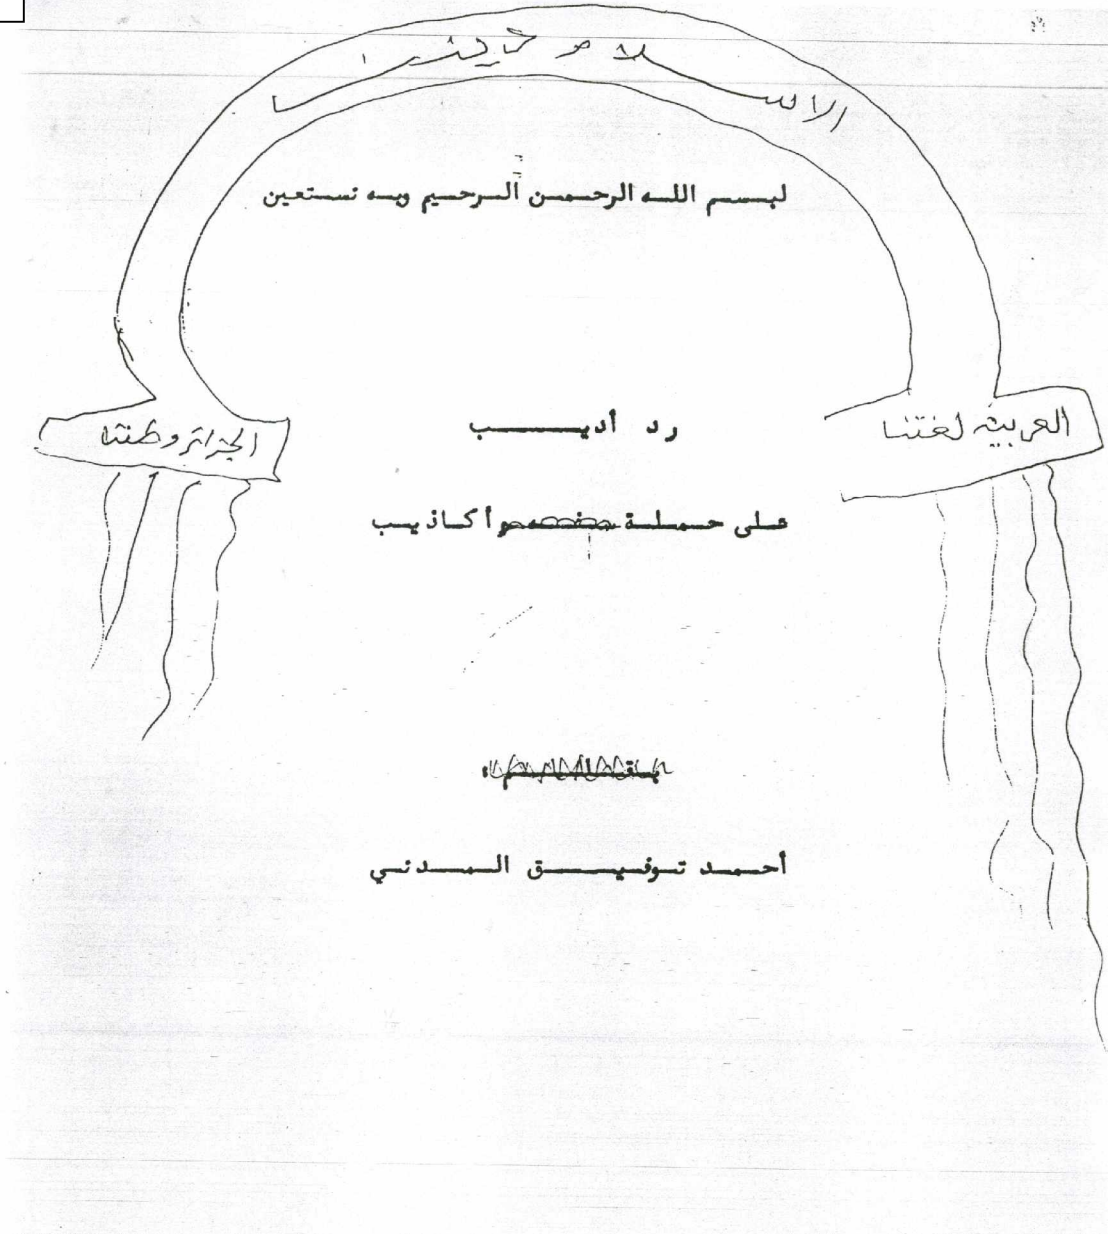 الاسلام ديننا
لبسم الله الرحمن الرحيم وبه نستعين
العربية لغتنا
الجزائر وطننا
رد أديب
على حملة أكاذيب
أحمد توفيق المدني